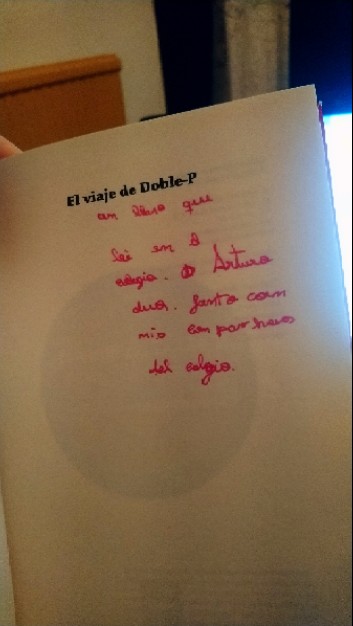 El viaje de Doble-P
un libro que
leí en el
colegio. Arturo
dua. Junto com
mis compañeros
del colegio.